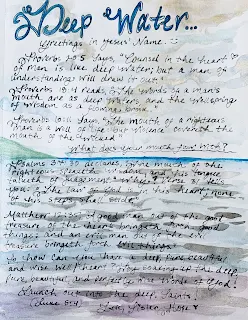 Deep Water...
Greetings in Jesus' Name. :)
Proverbs 20:5 says, "Counsel in the heart
of man is like deep water; but a man of
understanding will draw it out."
Proverbs 18:4 reads, "The words of a man's
mouth are as deep waters, and the wellspring
of wisdom as a flowing brook."
Proverbs 10:11 says, "The mouth of a righteous
man is a well of life: but violence covereth the
mouth of the wicked."
What does your mouth
Psalms 37:30 declares, "The mouth of the
righteous speaketh wisdom, and his tongue
talketh of judgment." Where? Verse 31 tells
you: "The law of God is in his heart; none
of his steps shall slide."
Matthew 12:35 "A good man out of the good
treasure of the heart bringeth forth good
things: and an evil man out of the evil
treasure bringeth forth evil things."
So how can you have a deep, pure beautiful
and wise well/heart? By soaking up the deep,
pure beautiful and perfectly wise Words of God!
Launch out into the deep, Saints!
(Luke 5:4) Love, Sister Rose